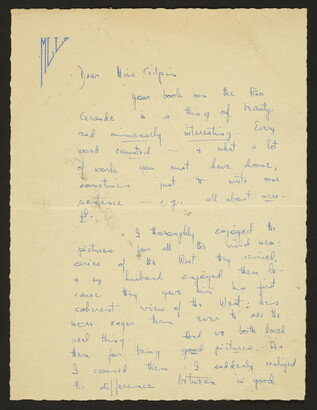 MLL
Dear Miss Gilpin
your book on the Rio
Grande is a thing of beauty
and immensely interesting. Every
word counted — & what a lot
of work you must have done,
sometimes just to write one
sentence — e.g. all about
I thoroughly enjoyed the
pictures for all the vivid mem-
ories of the West they revived,
& my husband enjoyed them be-
cause they gave him his first
coherent view of the West; he's
more eager than ever to see the
real thing. And we both loved
them for being good pictures. As
I scanned them I suddenly realized
the difference between a good